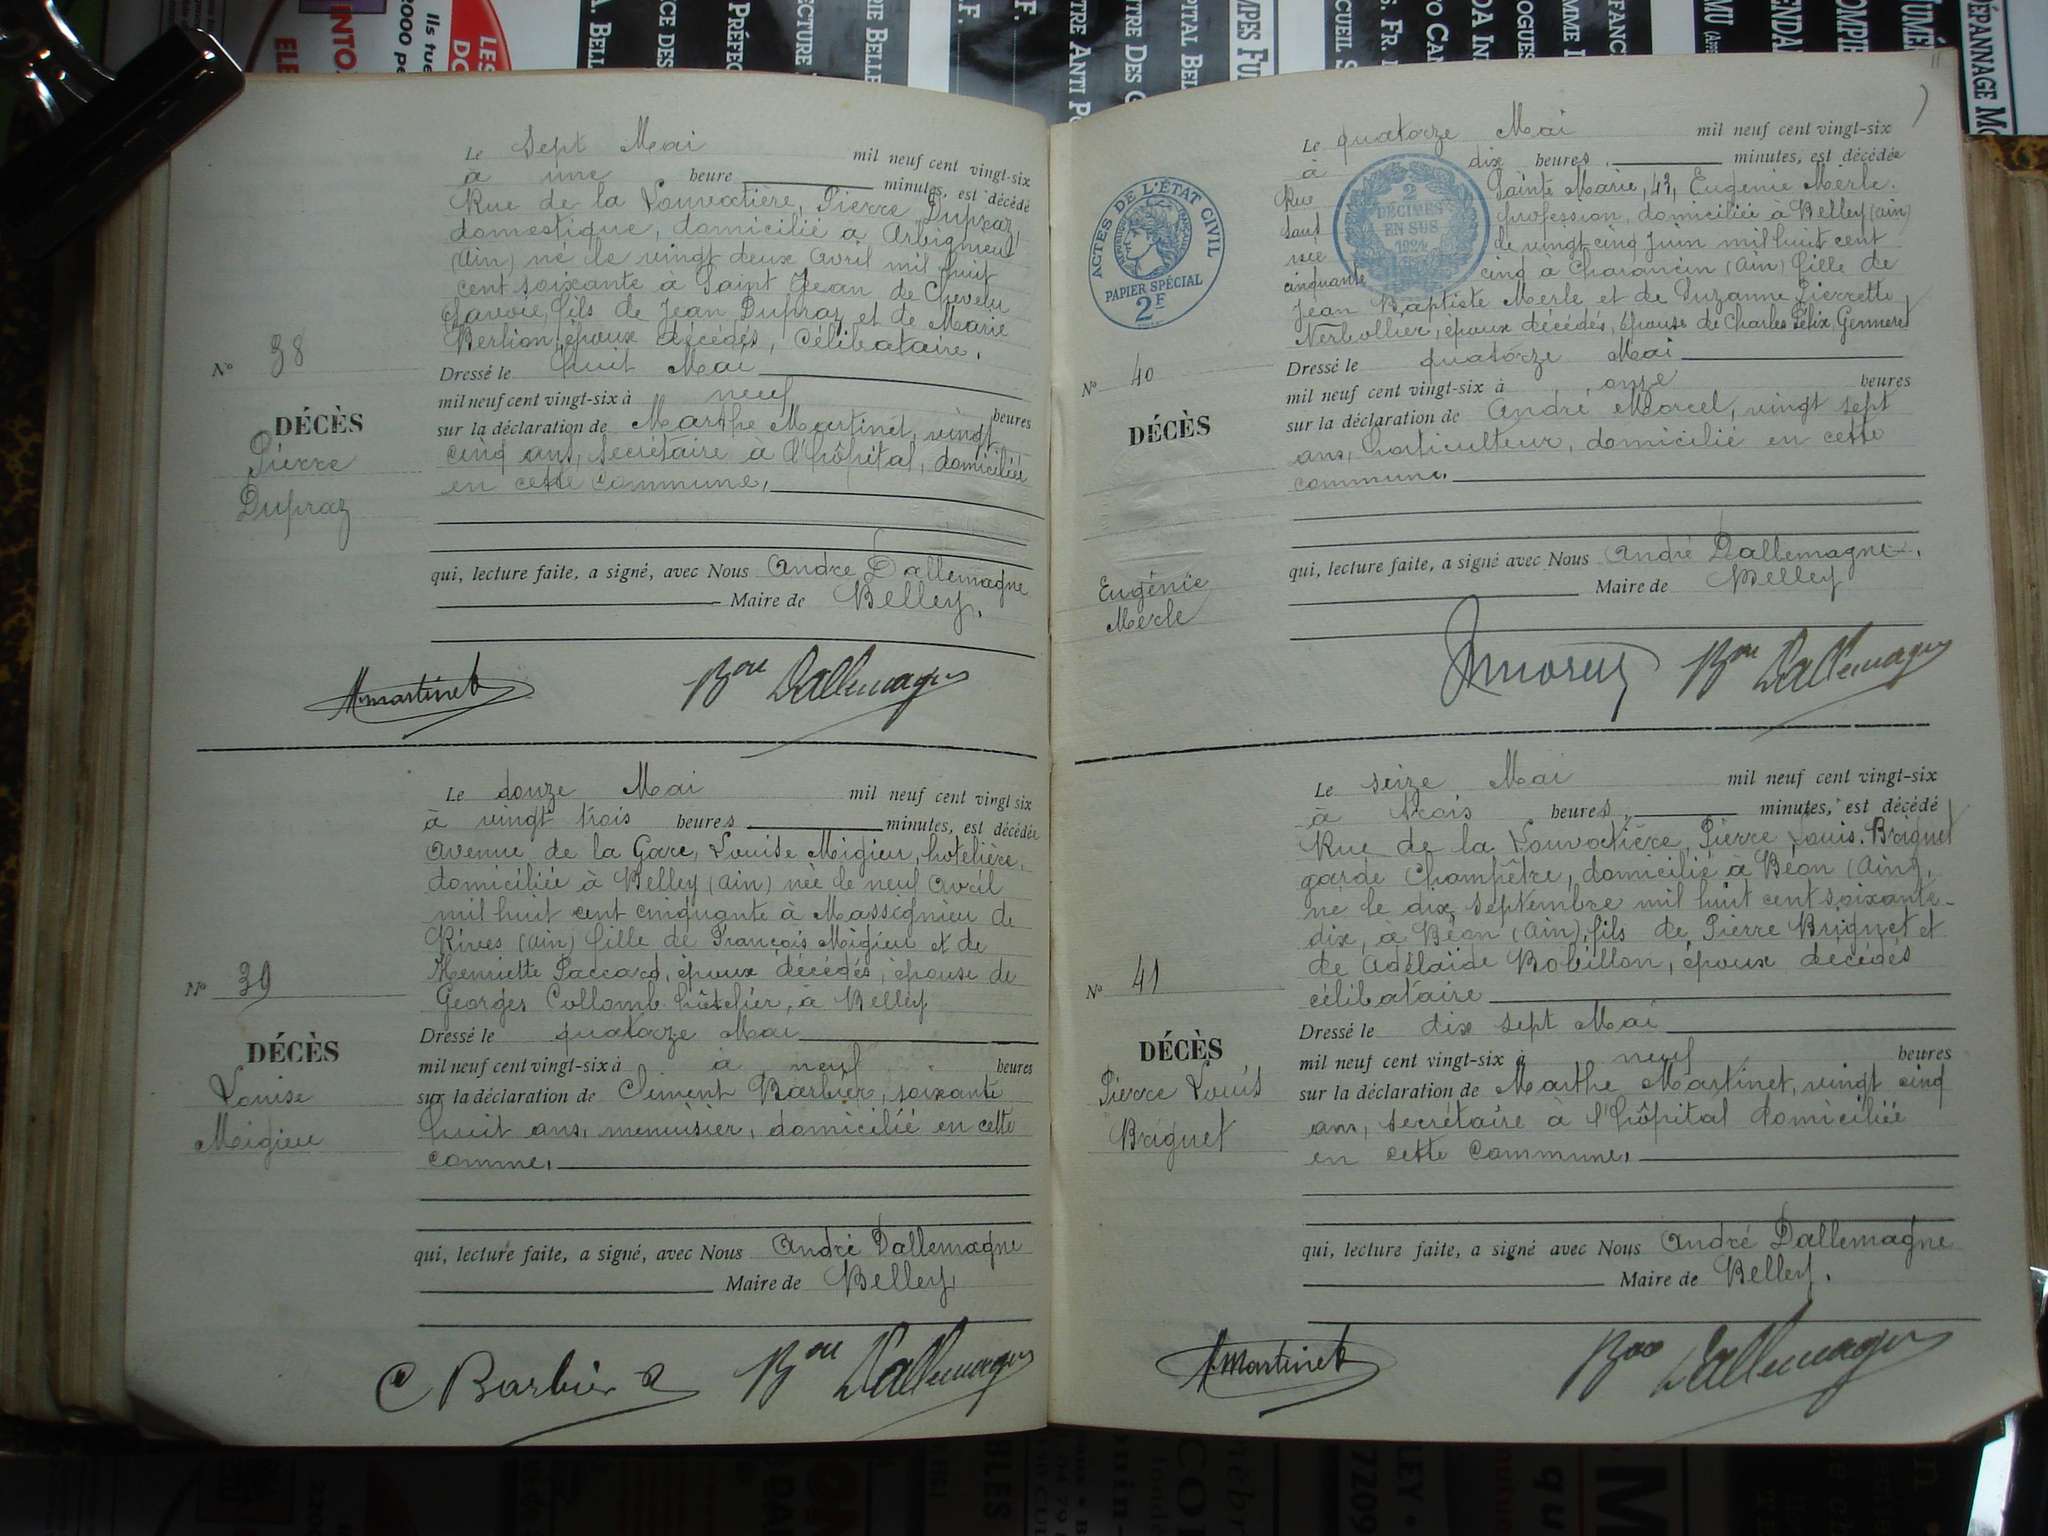 Le sept Mai mil neuf cent vingt-six
à une heure minutes, est décédé
Rue de la Louvatière, Pierre Dupraz,
domestique, domicilié à Arbignieu
(Ain) né le vingt deux avril mil huit
cent soixante à Saint Jean de Chevelu
Savoie, fils de Jean Dupraz et de Marie
Berlion, époux décédés, célibataire.
Dressé le huit Mai
mil neuf cent vingt-six à neuf heures
sur la déclaration de Marthe Martinet, vingt
cinq ans, secrétaire à l'hôpital, domiciliée
en cette commune.
qui, lecture faite, a signé, avec Nous André Dallemagne
Maire de Belley.
N° 38
DÉCÈS
Pierre
Dupraz
AMartinet Bon Dallemagne
Le douze Mai mil neuf cent vingt six
à vingt trois heures minutes, est décédée
Avenue de la Gare, Louise Migieu, hotelière,
domiciliée à Belley (Ain) née le neuf avril
mil huit cent cinquante à Massignieu de
Rives (Ain) fille de François Migieu et de
Henriette Paccard, époux décédés, épouse de
Georges Collomb hôtelier, à Belley
Dressé le quatorze Mai
mil neuf cent vingt-six à à neuf heures
sur la déclaration de Clément Barbier, soixante
huit ans, menuisier, domicilié en cette
comme.
qui, lecture faite, a signé, avec Nous André Dallemagne
Maire de Belley,
N° 39
DÉCÈS
Louise
Migieu
C Barbier Bon Dallemagne
Le quatorze Mai mil neuf cent vingt-six
à dix heures, minutes, est décédée
Rue Sainte Marie, 43, Eugénie Merle.
sans profession, domiciliée à Belley (Ain)
née le vingt cinq Juin mil huit cent
cinquante cinq à Charancin (Ain) fille de
Jean Baptiste Merle et de Suzanne Pierrette
époux décédés, épouse de Charles Félix
Dressé le quatorze Mai
mil neuf cent vingt-six à onze heures
sur la déclaration de André Morcel, vingt sept
ans, horticulteur, domicilié en cette
commune.
qui, lecture faite, a signé avec Nous André Dallemagne,
Maire de Belley
ACTES DE L'ÉTAT CIVIL
PAPIER SPÉCIAL
2F
2
DÉCIMES
EN SUS
1924
N° 40
DÉCÈS
Eugénie
Merle
Bon Dallemagne
Le seize Mai mil neuf cent vingt-six
à trois heures, minutes, est décédé
Rue de la Louvatière, Pierre Louis Briquet
garde Champêtre, domicilié à Béon (Ain),
né le dix septembre mil huit cent soixante-
dix, à Béon (Ain), fils de Pierre Briquet et
de Adélaïde Robillon, époux décédés
célibataire
Dressé le dix sept Mai
mil neuf cent vingt-six à neuf heures
sur la déclaration de Marthe Martinet, vingt cinq
ans, secrétaire à l'hôpital domiciliée
en cette commune,
qui, lecture faite, a signé avec Nous André Dallemagne
Maire de Belley.
N° 41
DÉCÈS
Pierre Louis
Briquet
AMartinet Bon Dallemagne